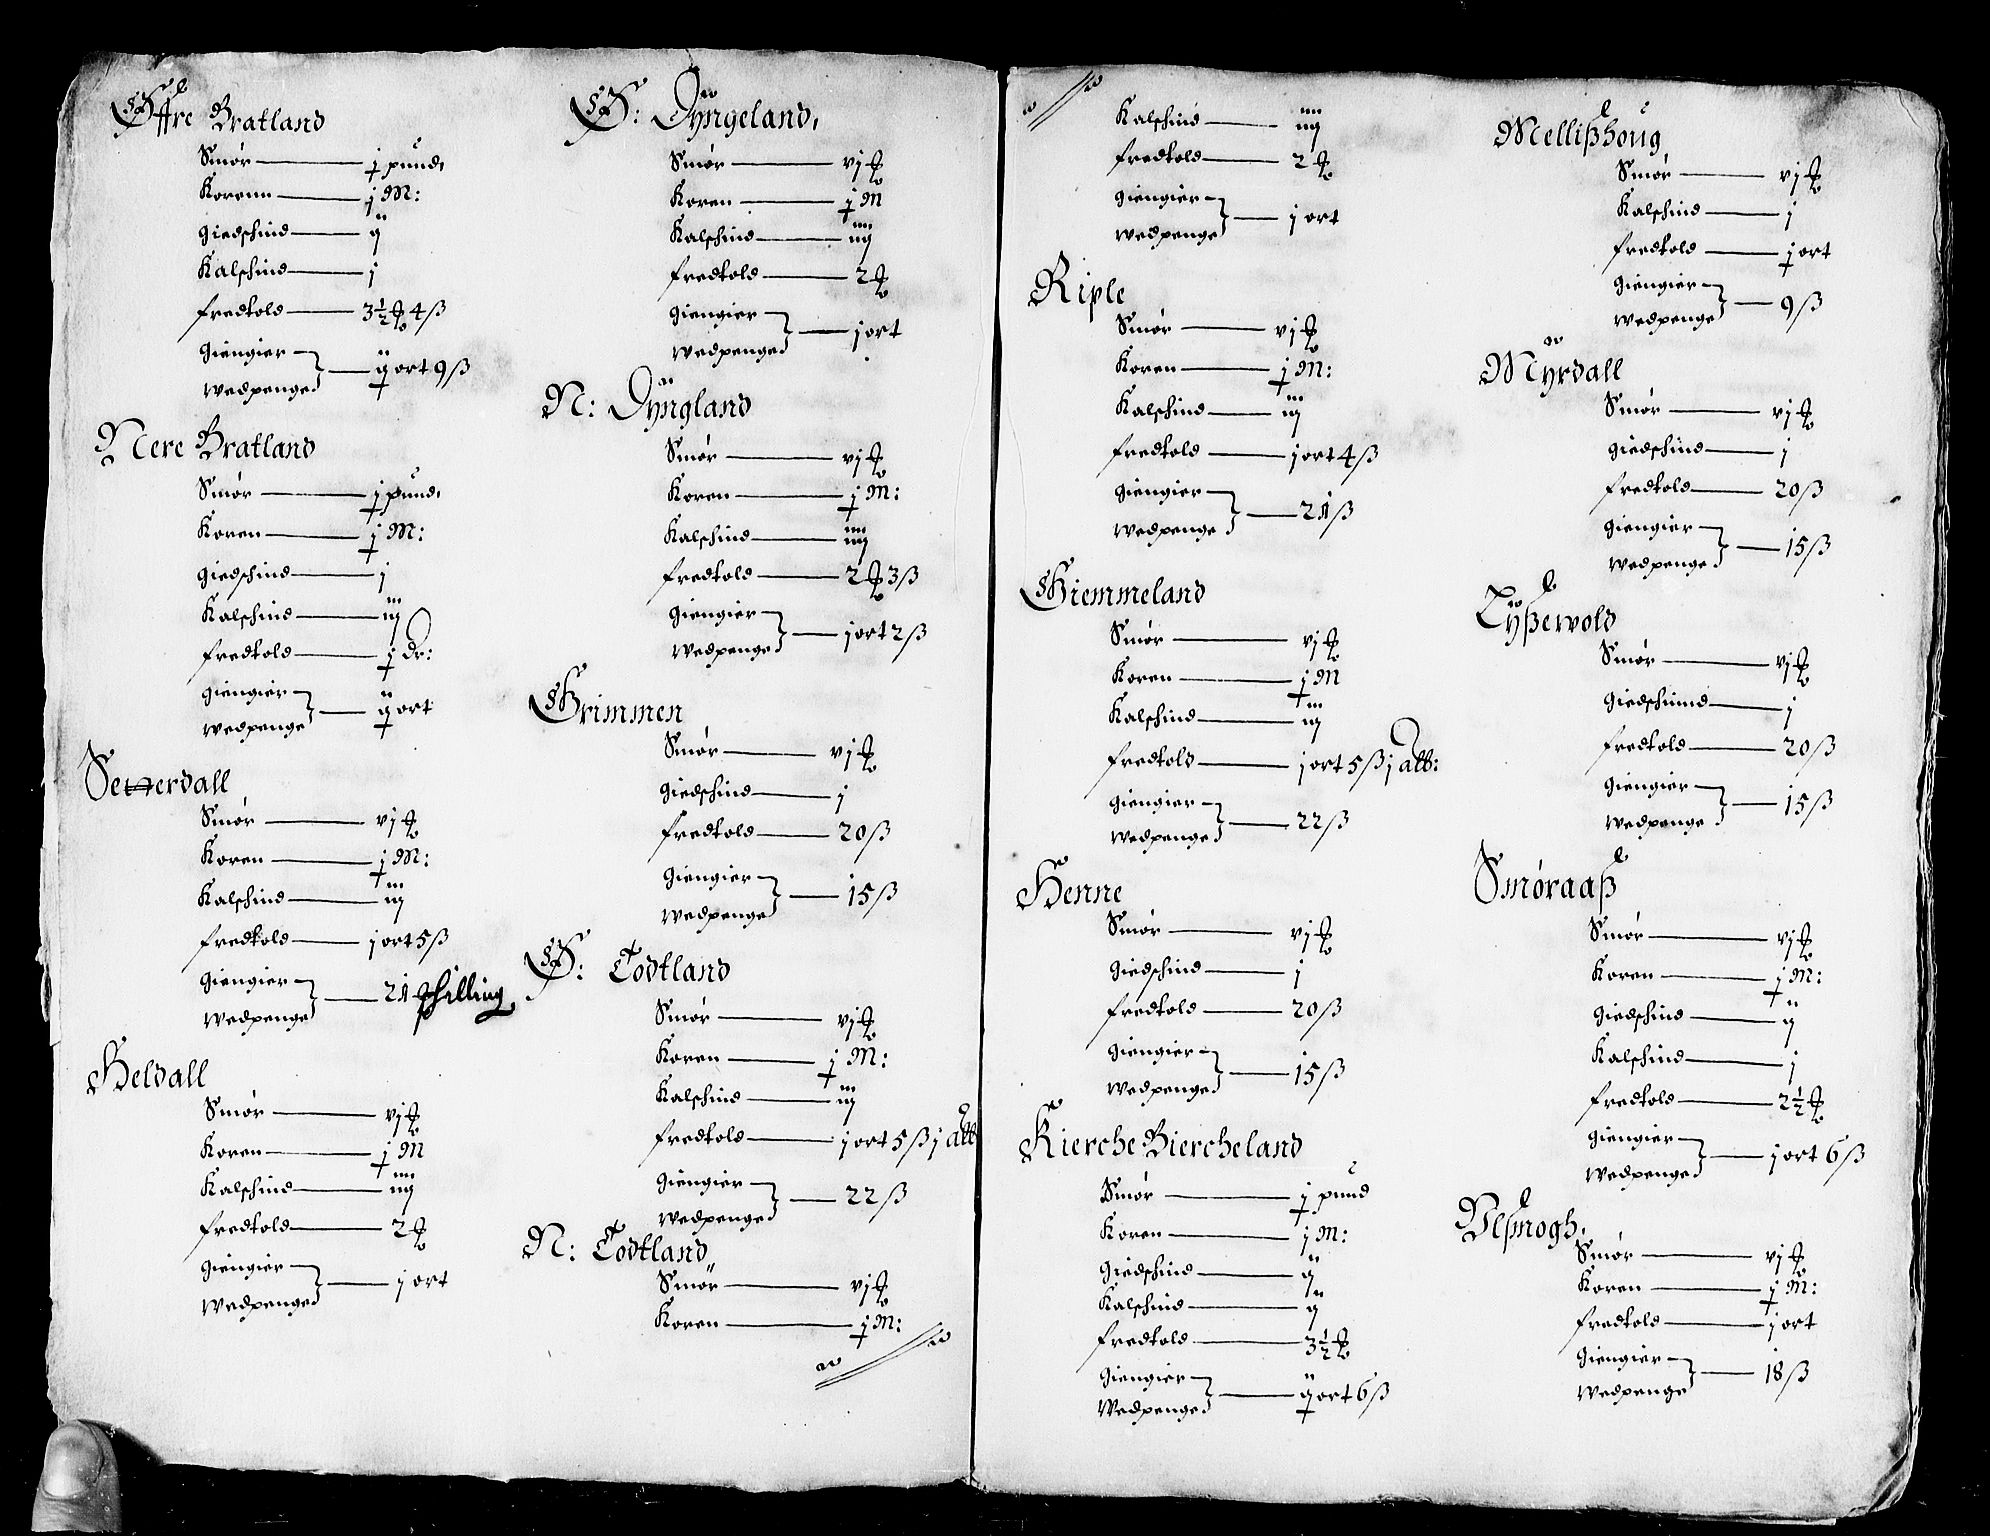 Øffre Bratland
Smør — j pund,
Korenn — j M:
giedschind — ij
Kalschind — j
fredtold — 3½ ℔ 4 ß
giengier
wedpenge — ij ort 9 ß
Nere Bratland
Smør — j pund,
Koren — j M:
giedschind — j
Kalschind — iij
fredtold — j Dr:
giengier
wedpenge — ij ort
Setterdall
Smør — vj ℔
Koren — j M:
Kalschind — iij
fredtold — j ort 5 ß
giengier
wedpenge — 21 schilling
Heldall
Smør — vj ℔
Koren — j M
Kalschind — iiij
fredtold — 2 ℔
giengier
wedpenge — j ort
Ø: Dÿngeland,
Smør — vj ℔
Koren — j M
Kalschind — iiij
fredtold — 2 ℔
giengier
wedpenge — j ort
N: Dÿngland
Smør — vj ℔
Koren — j M:
Kalschind — iiij
fredtold — 2 ℔ 3 ß
giengier
wedpenge — j ort 2 ß
Grimmen
Smør — vj ℔
giedschind — j
fredtold — 20 ß
giengier
wedpenge — 15 ß
Ø: Todtland
Smør — vj ℔
Koren — j M:
Kalschind — iij
fredtold — j ort 5 ß j alb
giengier
wedpenge — 22 ß
N: Todtland
Smør — vj ℔
Koren — j M:
Kalschind — iiij
fredtold — 2 ℔
giengier
wedpenge — j ort
Riple
Smør — vj ℔
Koren — j M:
Kalschind — iij
fredtold — j ort 4 ß
giengier
wedpenge — 21 ß
Giemmeland
Smør — vj ℔
Koren — j M
Kalschind — iij
fredtold — j ort 5 ß j alb:
giengier
wedpenge — 22 ß
Henne
Smør — vj ℔
giedschind — j
fredtold — 20 ß
giengier
wedpenge — 15 ß
Kierche Biercheland
Smør — j pund
Koren — j M:
giedschind — ij
Kalschind — ij
fredtold — 3½ ℔
giengier
wedpenge — ij ort 6 ß
Mellißhoug
Smør — vj ℔
Kalschind — j
fredtold — j ort
giengier
wedpenge — 9 ß
Mÿrdall
Smør — vj ℔
giedschind — j
fredtold — 20 ß
giengier
wedpenge — 15 ß
Tÿßevold
Smør — vj ℔
giedschinnd — j
fredtold — 20 ß
giengier
wedpenge — 15 ß
Smøraaß
Smør — vj ℔
Koren — j M:
giedschind — ij
Kalschind — j
fredtold — 2½ ℔
giengier
wedpenge — j ort 6 ß
Smør — vj ℔
Koren — j M:
fredtold — j ort
giengier
wedpenge — 18 ß